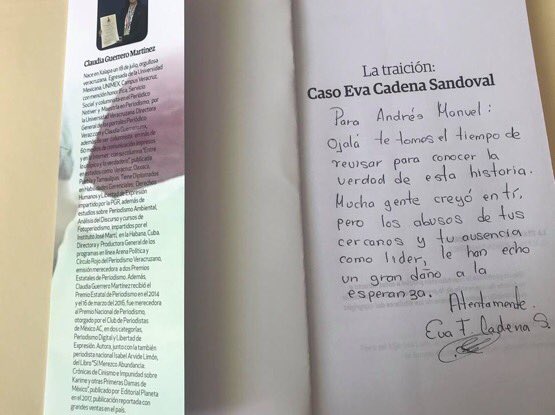 Claudia Guerrero Martínez
Nace en Xalapa un 18 de julio, orgullosa
veracruzana. Egresada de la Universidad
Mexicana, UNIMEX, Campus Veracruz,
con mención honorífica, Servicio
Social y columnista en el Periódico
Notiver y Maestría en Periodismo, por
la Universidad Veracruzana. Directora
General de los portales Periódico
Veraz.com y Claudia Guerrero.mx,
además de ser columnista en más de
60 medios de comunicación impresos
y en el internet con su columna "Entre
lo utópico y lo verdadero", publicada
en estados como Veracruz, Oaxaca,
Puebla y Tamaulipas. Tiene Diplomados
en Habilidades Gerenciales, Derechos
Humanos y Libertad de Expresión
impartido por la PGR, además de
estudios sobre Periodismo Ambiental,
Análisis del Discurso y cursos de
Fotoperiodismo, impartidos por el
Instituto José Martí, en la Habana, Cuba.
Directora y Productora General de los
programas en línea Arena Política y
Círculo Rojo del Periodismo Veracruzano,
emisión merecedora a dos Premios
Estatales de Periodismo. Además,
Claudia Guerrero Martínez recibió el
Premio Estatal de Periodismo en el 2014
y el 16 de marzo del 2016, fue merecedora
al Premio Nacional de Periodismo,
otorgado por el Club de Periodistas
de México AC, en dos categorías,
Periodismo Digital y Libertad de
Expresión. Autora, junto con la también
periodista nacional Isabel Arvide Limón,
del Libro "Sí Merezco Abundancia:
Crónicas de Cinismo e Impunidad sobre
Karime y otras Primeras Damas de
México", publicado por Editorial Planeta
en el 2017, publicación reportada con
grandes ventas en el país.
La traición:
Caso Eva Cadena Sandoval
Para Andrés Manuel:
Ojalá te tomes el tiempo de
revisar para conocer la
verdad de esta historia.
Mucha gente creyó en tí,
pero los abusos de tus
cercanos y tu ausencia
como líder, le han echo
un gran daño a la
esperanza.
Atentamente.
Eva F. Cadena S.